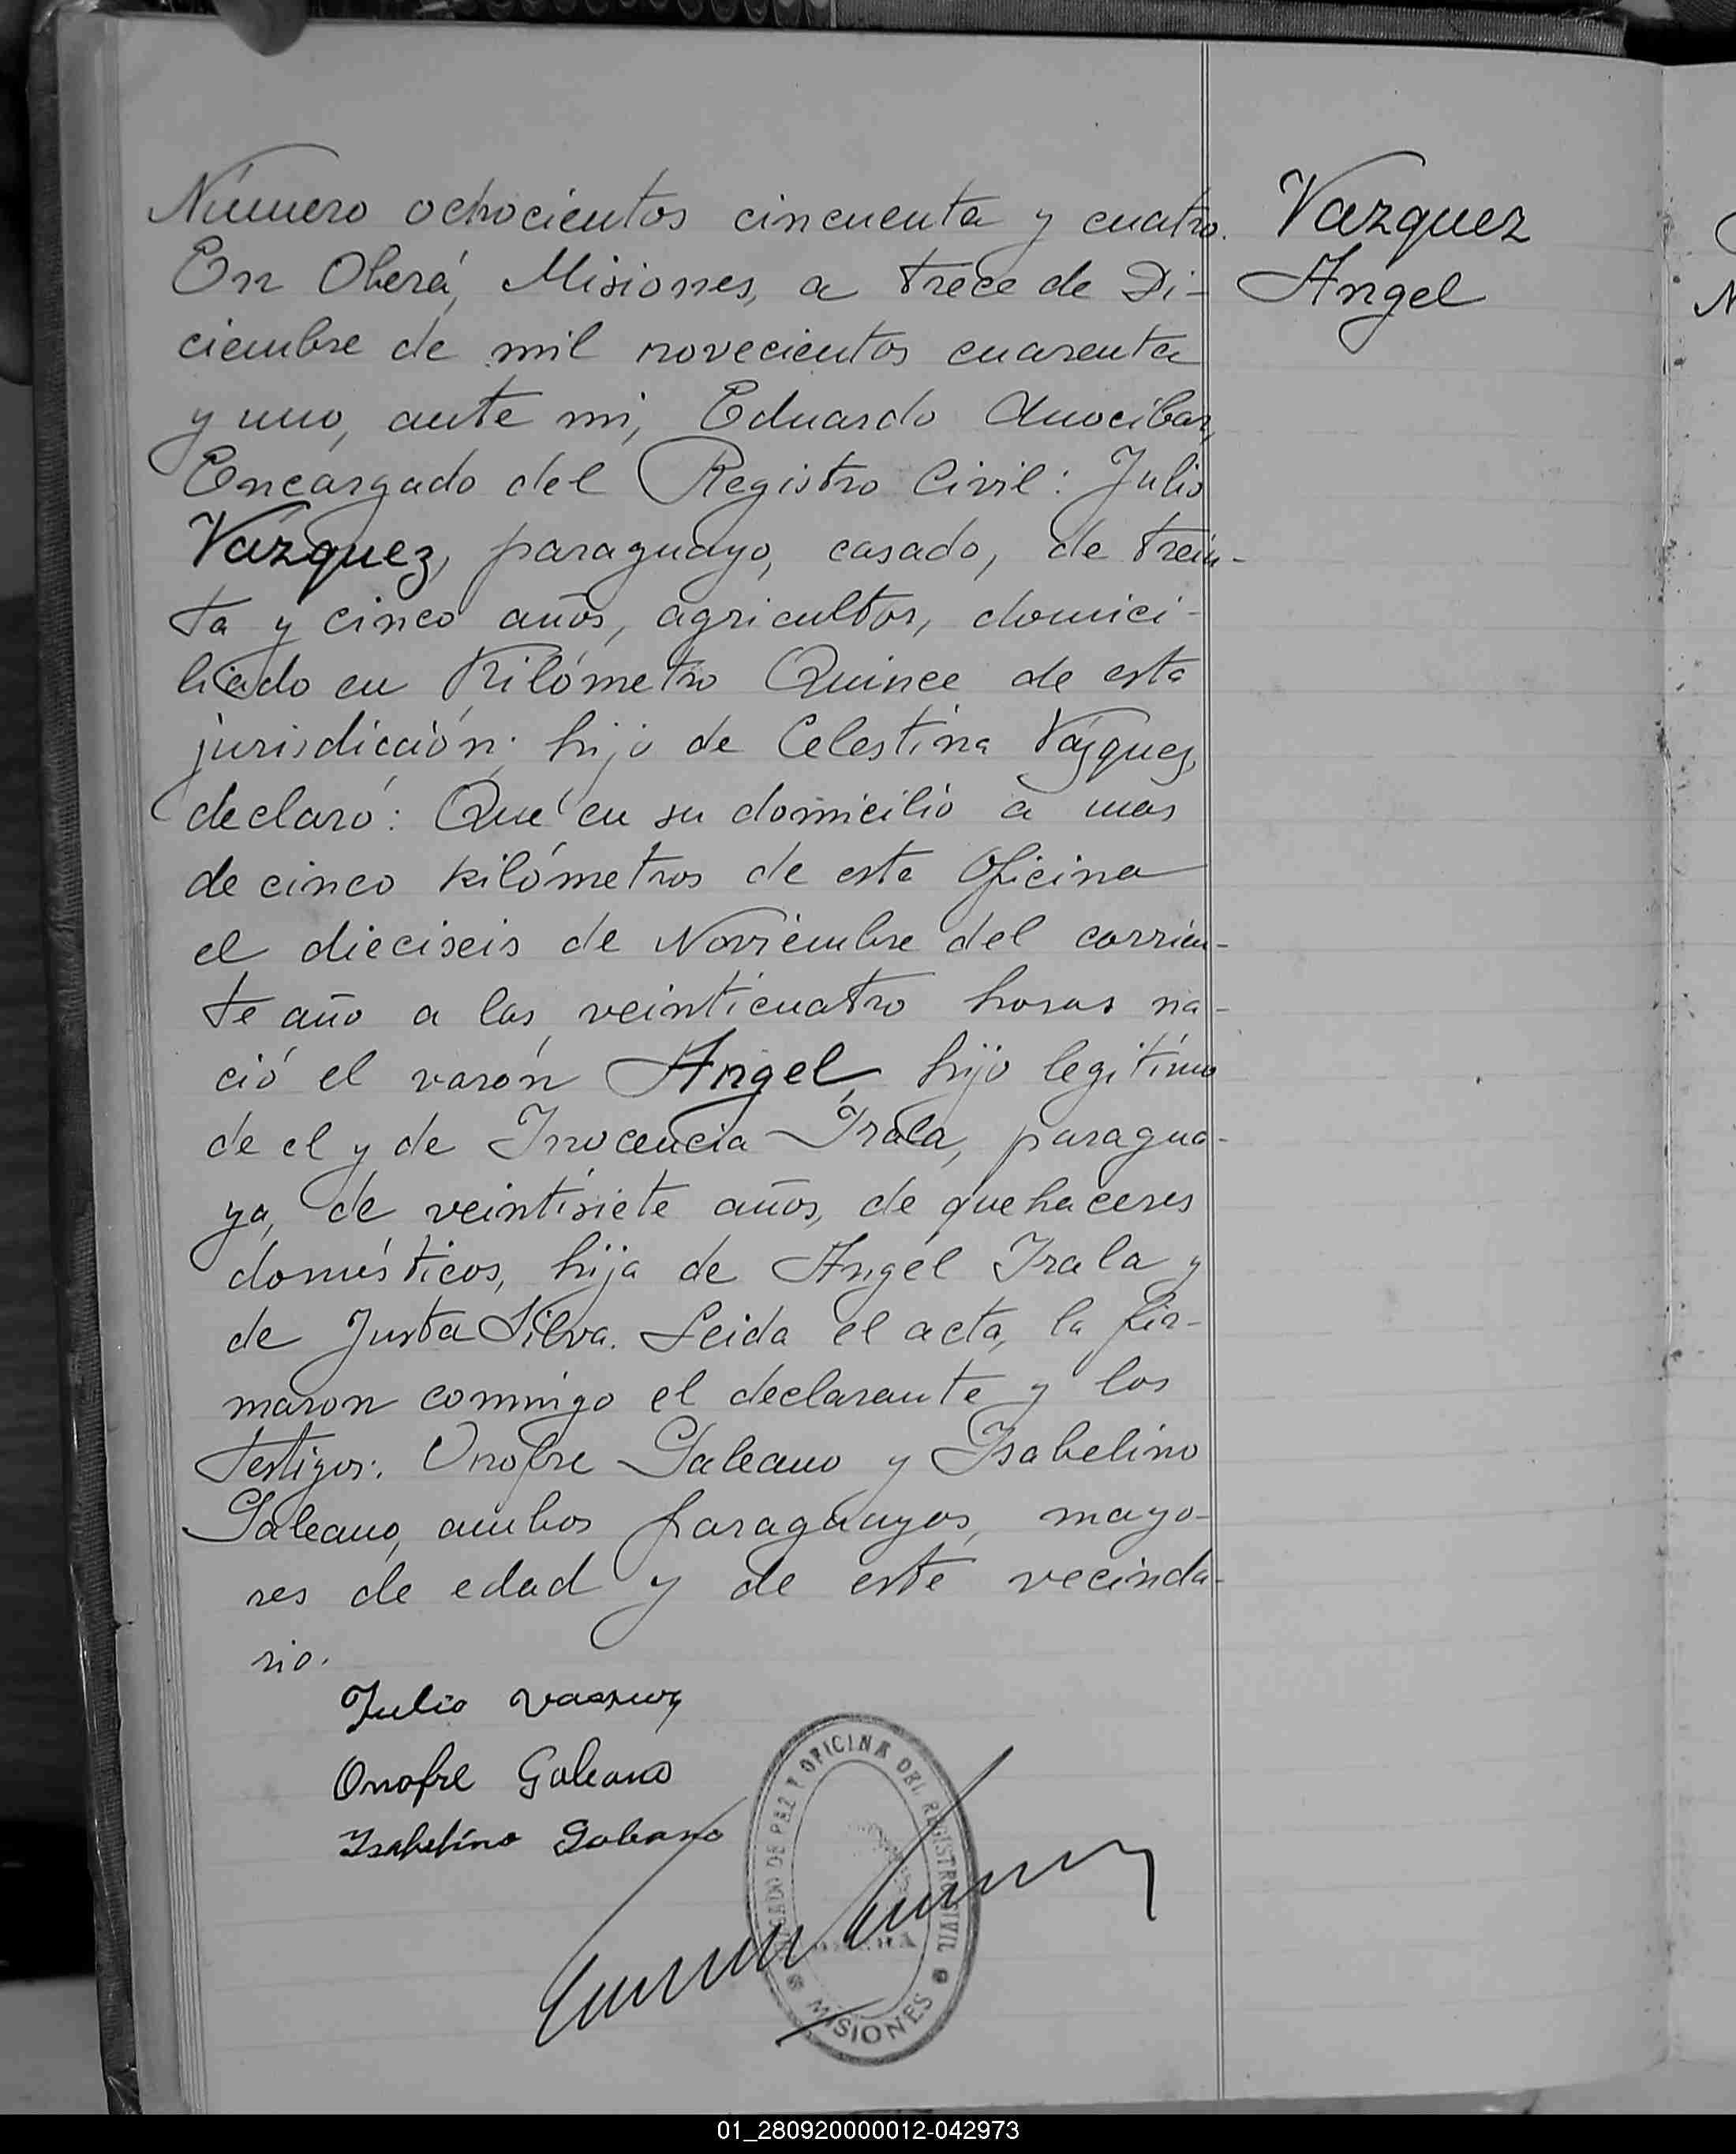 Número ochocientos cincuenta y cuatro.
En Oberá, Misiones, a trece de Di-
ciembre de mil novecientos cuarenta
y uno, ante mi, Eduardo Anocibar,
Encargado del Registro Civil: Julio
Vázquez, paraguayo, casado, de trein-
ta y cinco años, agricultor, domici-
liado en Kilómetro Quince de esta
jurisdicción; hijo de Celestina Vázquez,
declaró: Que en su domicilio a mas
de cinco kilómetros de esta Oficina
el dieciseis de Noviembre del corrien-
te año a las veinticuatro horas na-
ció el varón Angel, hijo legitimo
de el y de Inocencia Irala, paragua-
ya, de veintisiete años, de quehaceres
domésticos, hija de Angel Irala y
de Justa Silva. Leida el acta, la fir-
maron conmigo el declarante y los
testigos: Onofre Galeano y Isabelino
Galeano, ambos paraguayos, mayo-
res de edad y de este vecinda-
rio.
Vazquez
Angel
Julio Vasquez
Onofre Galeano
Isabelino Galeano
JUZGADO DE PAZ Y OFICINA DEL REGISTRO CIVIL
MISIONES
01_280920000012-042973